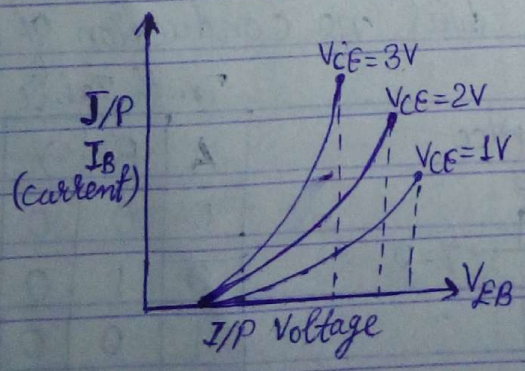 VCE=3V
VCE=2V
VCE=1V
I/P
IB
(current)
VEB
I/P Voltage